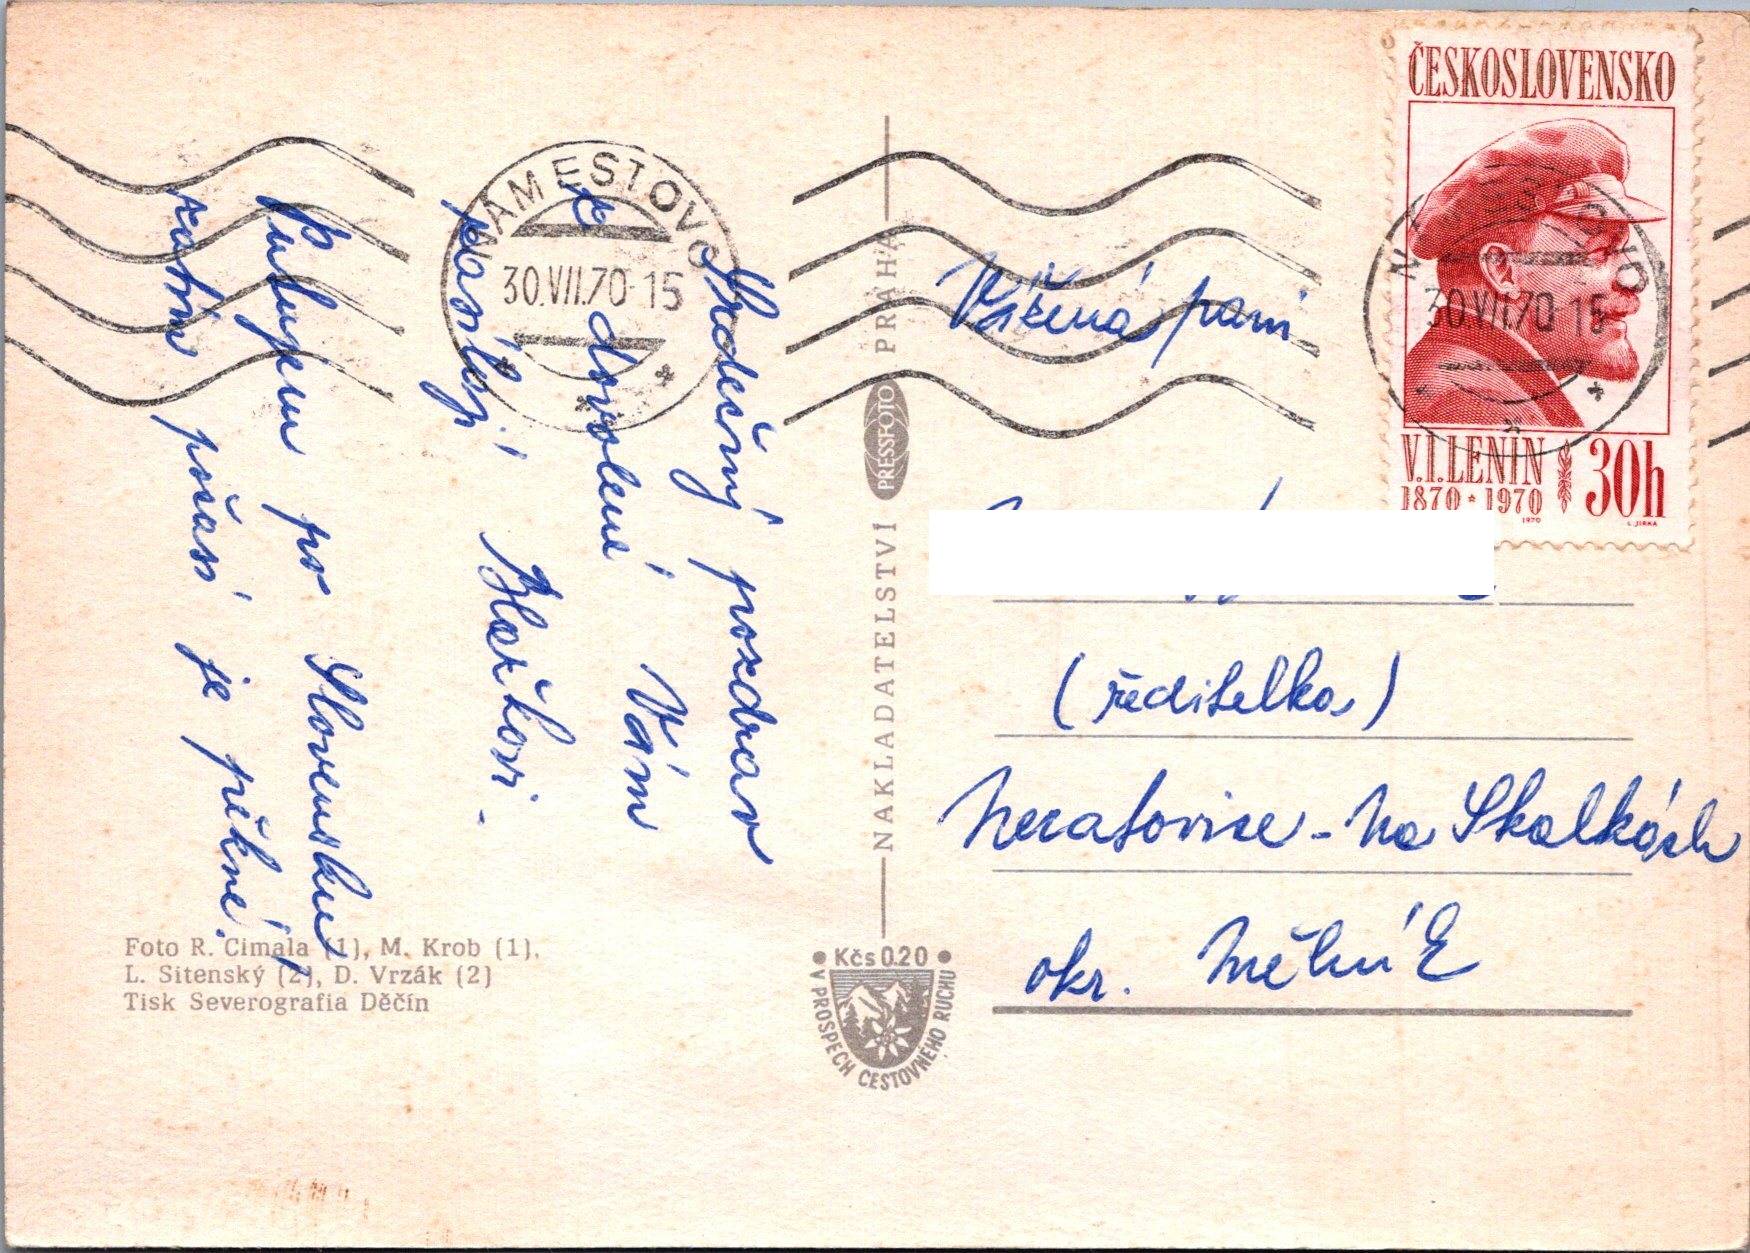 Srdečný pozdrav
z dovolené Vám
zasílají Havlovi.
Putujem po Slovensku,
zatím počasí je pěkné.
Foto R. Cimala (1), M. Krob (1),
L. Sitenský (2), D. Vrzák (2)
Tisk Severografia Děčín
NAMESTOVO
30.VII.70-15
NAKLADATELSTVÍ PRESSFOTO PRAHA
Kčs 0.20
V PROSPĚCH CESTOVNÉHO RUCHU
ČESKOSLOVENSKO
V.I.LENIN 30h
1870 * 1970
1970 L. JIRKA
30.VII.70 15
Vážená paní
(ředitelka)
Neratovice - Na Skalkách
okr. Mělník